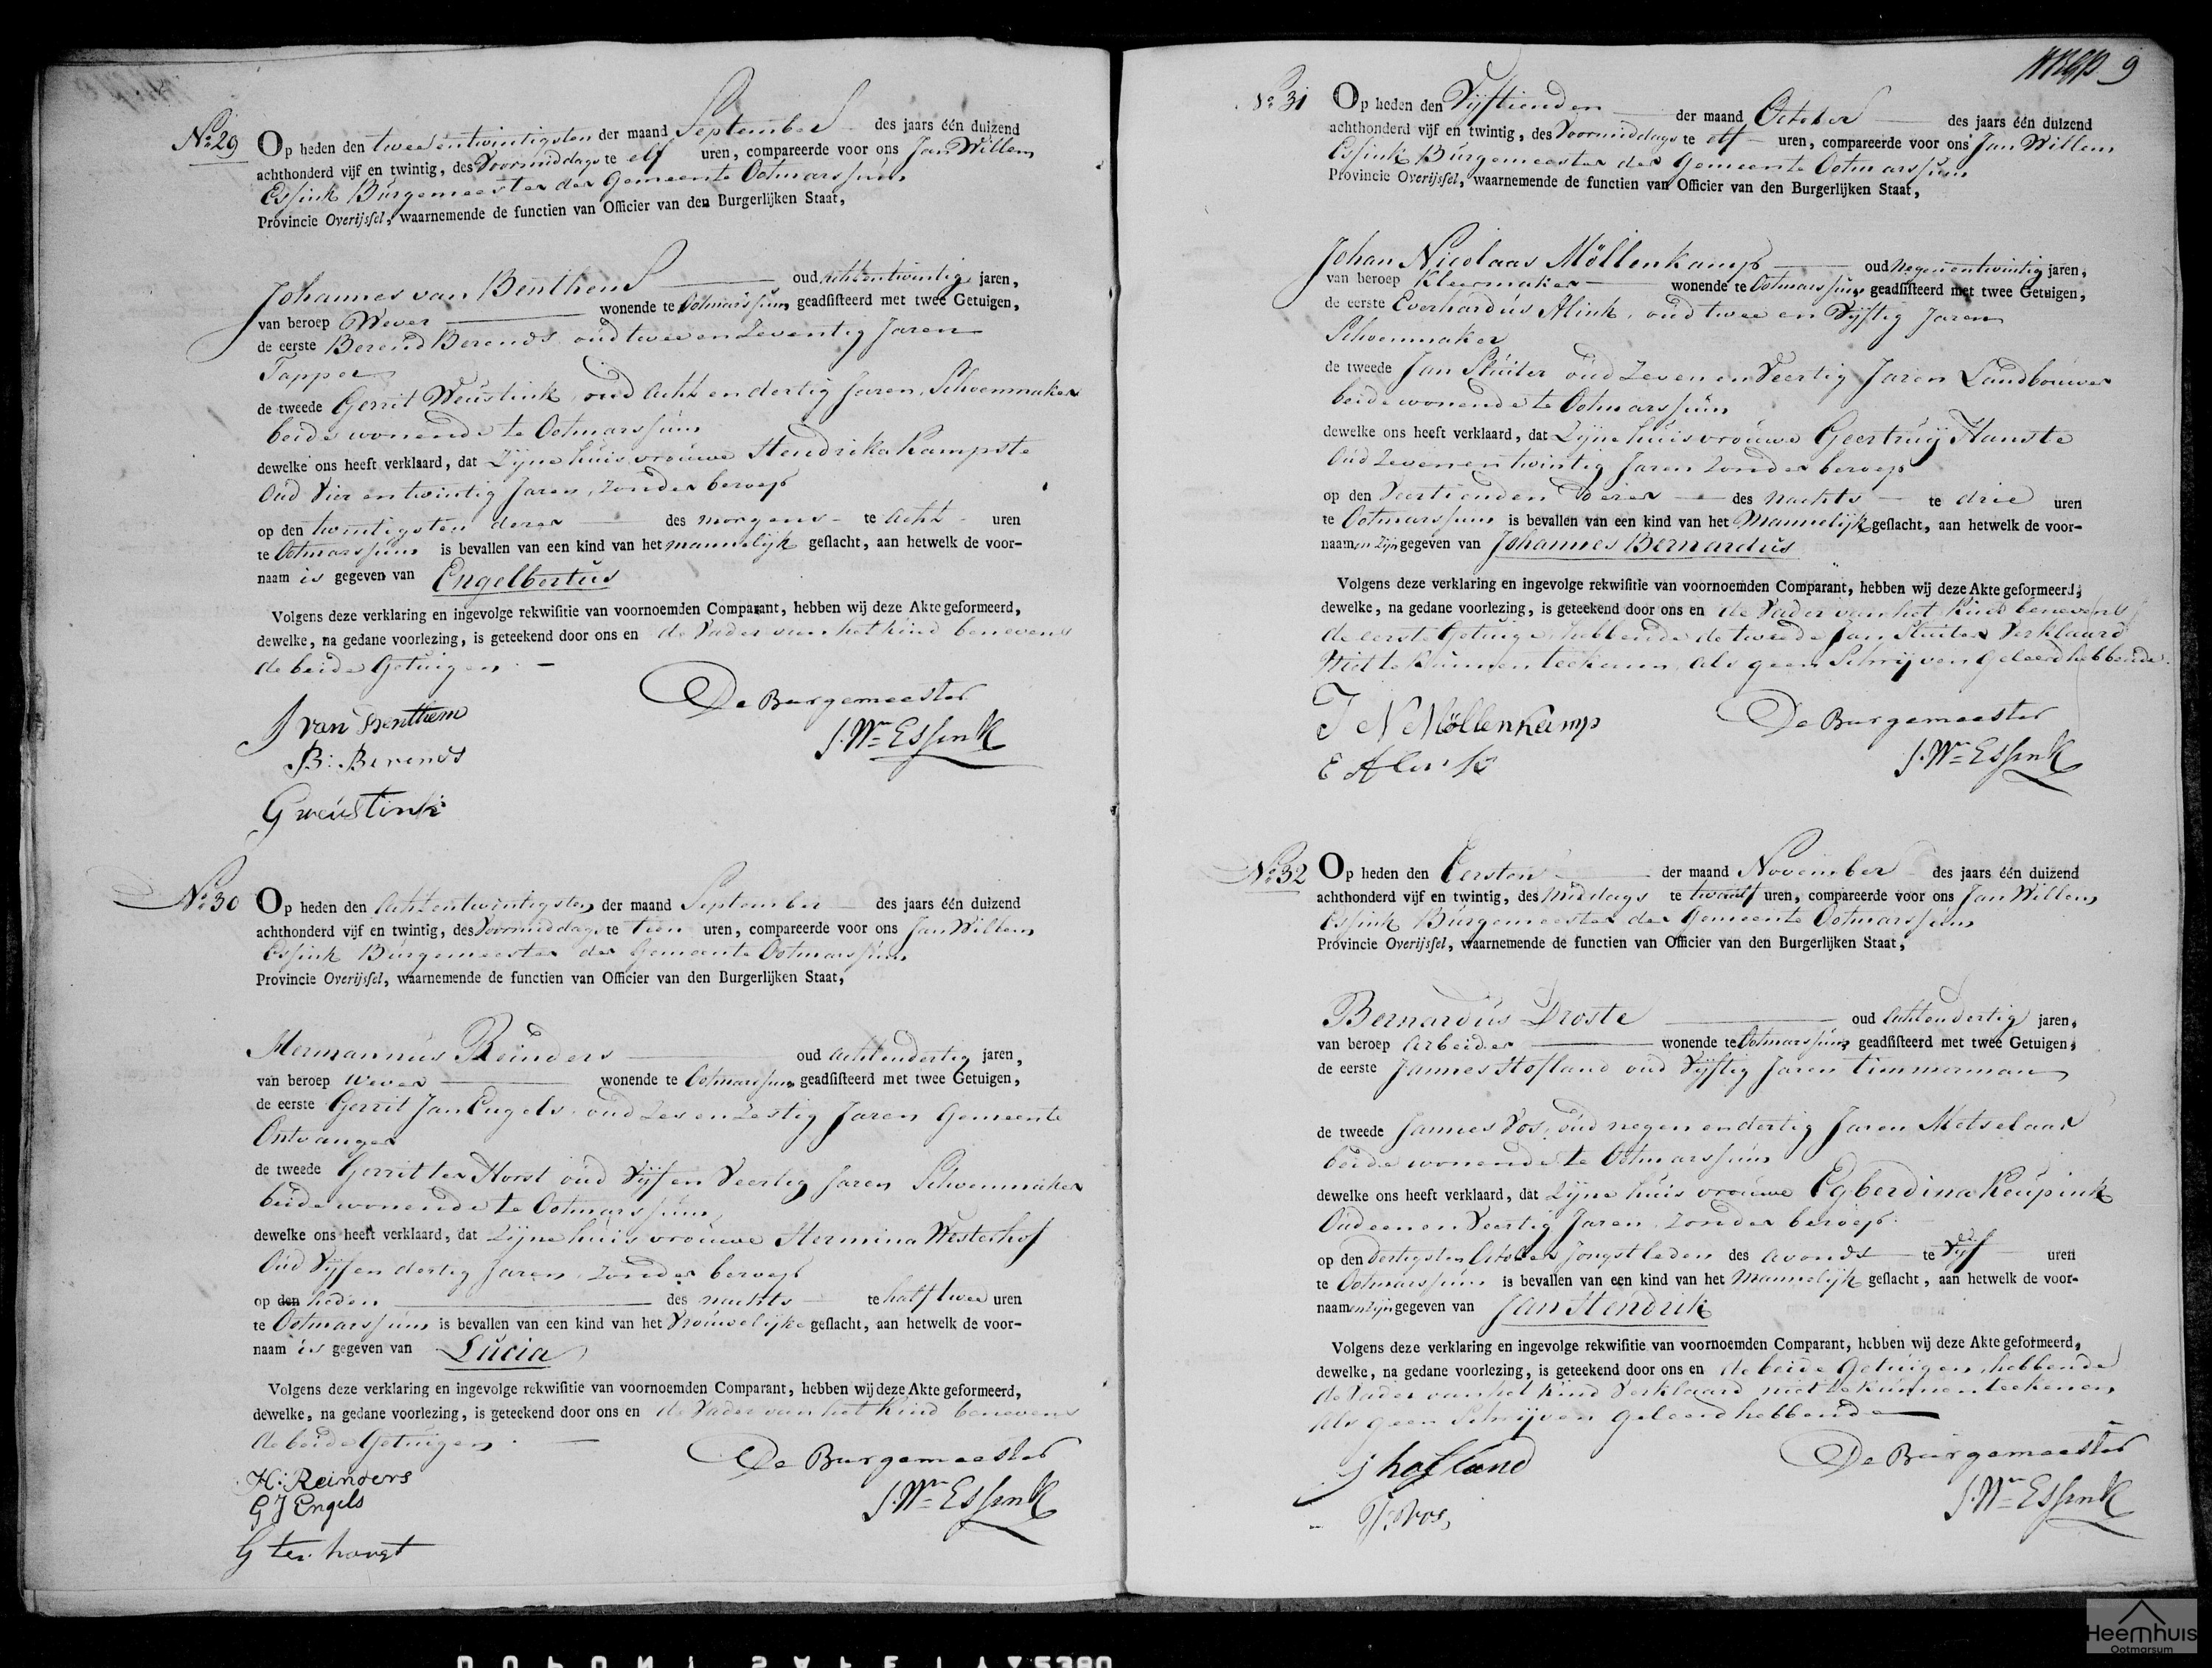 No 29 Op heden den twee en twintigsten der maand September des jaars één duizend
achthonderd vijf en twintig, des Voormiddags te elf uren, compareerde voor ons Jan Willem
Essink Burgemeester der Gemeente Ootmarssum
Provincie Overijssel, waarnemende de functien van Officier van den Burgerlijken Staat,
Johannes van Benthem oud acht en twintig jaren,
van beroep Wever wonende te Ootmarssum geadsisteerd met twee Getuigen,
de eerste Berend Berends oud twee en zeventig Jaren
Tapper
de tweede Gerrit Weustink, oud acht en dertig Jaren, Schoenmaker
beide wonende te Ootmarssum
dewelke ons heeft verklaard, dat Zijne huisvrouwe Hendrika Kampste
Oud Vier en twintig Jaren, zonder beroep
op den twintigsten dezer des morgens te acht uren
te Ootmarssum is bevallen van een kind van het mannelijk geslacht, aan hetwelk de voor-
naam is gegeven van Engelbertus
Volgens deze verklaring en ingevolge rekwisitie van voornoemden Comparant, hebben wij deze Akte geformeerd,
dewelke, na gedane voorlezing, is geteekend door ons en de Vader van het kind benevens
de beide Getuigen.
De Burgemeester
J van Benthem
J. Wm Essink
B: Berends
G weustink
No 30 Op heden den Acht en twintigsten der maand September des jaars één duizend
achthonderd vijf en twintig, des Voormiddags te tien uren, compareerde voor ons Jan Willem
Essink Burgemeester der Gemeente Ootmarssum
Provincie Overijssel, waarnemende de functien van Officier van den Burgerlijken Staat,
Hermannus Reinders oud acht en dertig jaren,
van beroep Wever wonende te Ootmarssum geadsisteerd met twee Getuigen,
de eerste Gerrit Jan Engels oud Zes en Zestig Jaren Gemeente
Ontvanger
de tweede Gerrit ter Horst oud Vijf en Veertig Jaren Schoenmaker
beide wonende te Ootmarssum
dewelke ons heeft verklaard, dat Zijne huisvrouwe Hermina Westerhof
Oud Vijf en dertig Jaren, zonder beroep
op den heden des nachts te half twee uren
te Ootmarssum is bevallen van een kind van het Vrouwelijke geslacht, aan hetwelk de voor-
naam is gegeven van Lucia
Volgens deze verklaring en ingevolge rekwisitie van voornoemden Comparant, hebben wij deze Akte geformeerd,
dewelke, na gedane voorlezing, is geteekend door ons en de Vader van het Kind benevens
de beide Getuigen.
De Burgemeester
H: Reinders
J. Wm Essink
GJ Engels
G ter horst
9
No 31 Op heden den Vijftienden der maand October des jaars één duizend
achthonderd vijf en twintig, des Voormiddags te elf uren, compareerde voor ons Jan Willem
Essink Burgemeester der Gemeente Ootmarssum
Provincie Overijssel, waarnemende de functien van Officier van den Burgerlijken Staat,
Johan Nicolaas Möllenkamp oud Negen en twintig jaren,
van beroep Kleermaker wonende te Ootmarssum geadsisteerd met twee Getuigen,
de eerste Everhardus Alink, oud twee en Vijftig Jaren
Schoenmaker
de tweede Jan Sluiter oud Zeven en Veertig Jaren Landbouwer
beide wonende te Ootmarssum
dewelke ons heeft verklaard, dat Zijne huisvrouwe Geertruij Hanste
Oud Zeven en twintig Jaren zonder beroep
op den Veertienden dezer des nachts te drie uren
te Ootmarssum is bevallen van een kind van het Mannelijk geslacht, aan hetwelk de voor-
naamen zijn gegeven van Johannes Bernardus
Volgens deze verklaring en ingevolge rekwisitie van voornoemden Comparant, hebben wij deze Akte geformeerd,
dewelke, na gedane voorlezing, is geteekend door ons en de Vader van het Kind benevens
de eerste Getuige, hebbende de tweede Jan Sluiter Verklaard
Niet te kunnen teekenen, als geen Schrijven geleerd hebbende.
De Burgemeester
J N Möllenkamp
J. Wm Essink
E Alink
No 32 Op heden den Eersten der maand November des jaars één duizend
achthonderd vijf en twintig, des Middags te twaalf uren, compareerde voor ons Jan Willem
Essink Burgemeester der Gemeente Ootmarssum
Provincie Overijssel, waarnemende de functien van Officier van den Burgerlijken Staat,
Bernardus Droste oud Acht en dertig jaren,
van beroep Arbeider wonende te Ootmarssum geadsisteerd met twee Getuigen,
de eerste Jannes Hofland oud Vijftig Jaren timmerman
de tweede Jannes Vos, oud negen en dertig Jaren Metselaar
beide wonende te Ootmarssum
dewelke ons heeft verklaard, dat Zijne huisvrouwe Egberdina Keupink
Oud een en Veertig Jaren, zonder beroep.
op den dertigsten October Jongstleden des avonds te Vijf uren
te Ootmarssum is bevallen van een kind van het Mannelijk geslacht, aan hetwelk de voor-
naamen zijn gegeven van Jan Hendrik
Volgens deze verklaring en ingevolge rekwisitie van voornoemden Comparant, hebben wij deze Akte geformeerd,
dewelke, na gedane voorlezing, is geteekend door ons en de beide Getuigen, hebbende
de Vader van het Kind Verklaard niet te kunnen teekenen,
als geen Schrijven geleerd hebbende
De Burgemeester
J hofland
J. Wm Essink
J. Vos,
Heemhuis
Ootmarsum